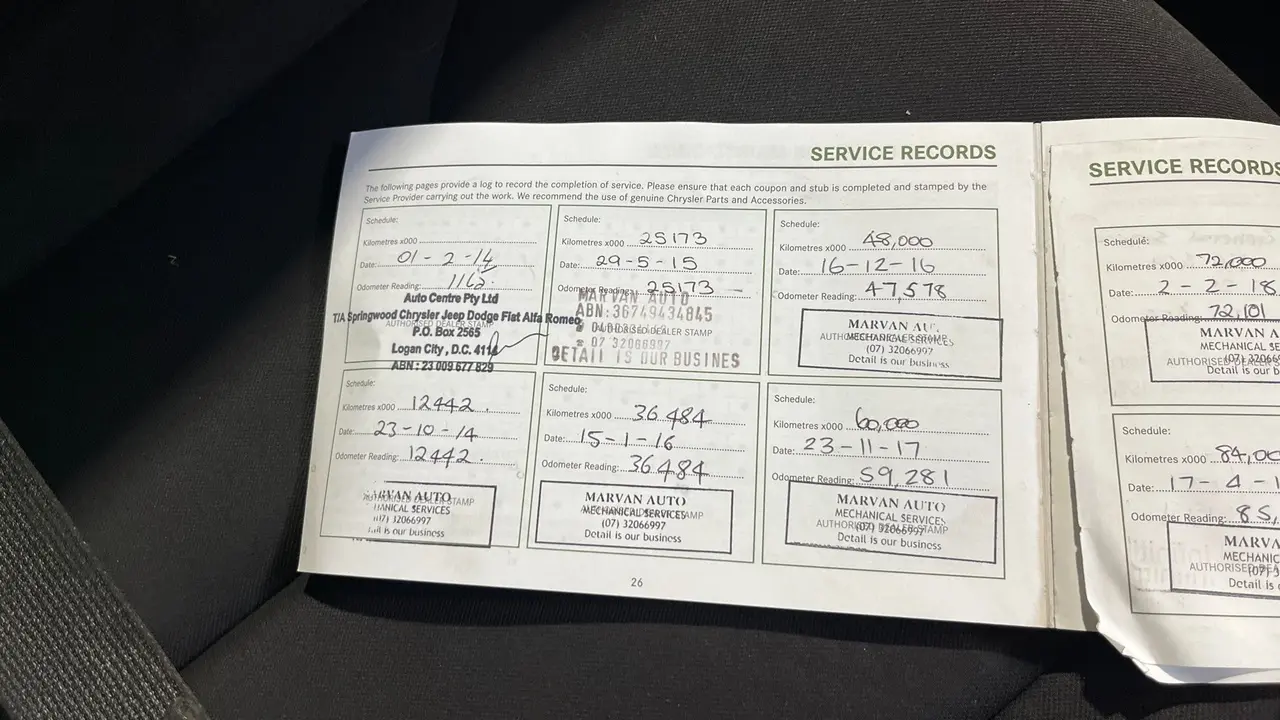 SERVICE RECORDS
The following pages provide a log to record the completion of service. Please ensure that each coupon and stub is completed and stamped by the
Service Provider carrying out the work. We recommend the use of genuine Chrysler Parts and Accessories.
Schedule:
Kilometres x000
Date: 01-2-14
Odometer Reading: 1162.
AUTHORISED DEALER STAMP
Auto Centre Pty Ltd
T/A Springwood Chrysler Jeep Dodge Fiat Alfa Romeo
P.O. Box 2565
Logan City, D.C. 4114
ABN: 23 009 677 829
Schedule:
Kilometres x000 25173
Date: 29-5-15
Odometer Reading: 25173
AUTHORISED DEALER STAMP
MARVAN AUTO
ABN:36749434845
07 32066997
DETAIL IS OUR BUSINES
Schedule:
Kilometres x000 48,000
Date: 16-12-16
Odometer Reading: 47,578
AUTHORISED DEALER STAMP
MARVAN
MECHANICAL SERVICES
(07) 32066997
Detail is our business
Schedule:
Kilometres x000 12442.
Date: 23-10-14
Odometer Reading: 12442.
AUTHORISED DEALER STAMP
MARVAN AUTO
HANICAL SERVICES
(07) 32066997
is our business
Schedule:
Kilometres x000 36484
Date: 15-1-16
Odometer Reading: 36484
AUTHORISED DEALER STAMP
MARVAN AUTO
MECHANICAL SERVICES
(07) 32066997
Detail is our business
Schedule:
Kilometres x000 60,000
Date: 23-11-17
Odometer Reading: 59,281
AUTHORISED DEALER STAMP
MARVAN AUTO
MECHANICAL SERVICES
(07) 32066997
Detail is our business
26
SERVICE RECORDS
Schedule:
Kilometres x000 72,000
Date: 2-2-18
Odometer Reading: 72,101
AUTHORISED
MARVAN A
MECHANICAL SE
(07) 32066
Detail is our b
Schedule:
Kilometres x000 84,00
Date: 17-4-1
Odometer Reading: 85,
AUTHORISED
MARVA
MECHANIC
(07) 3
Detail is